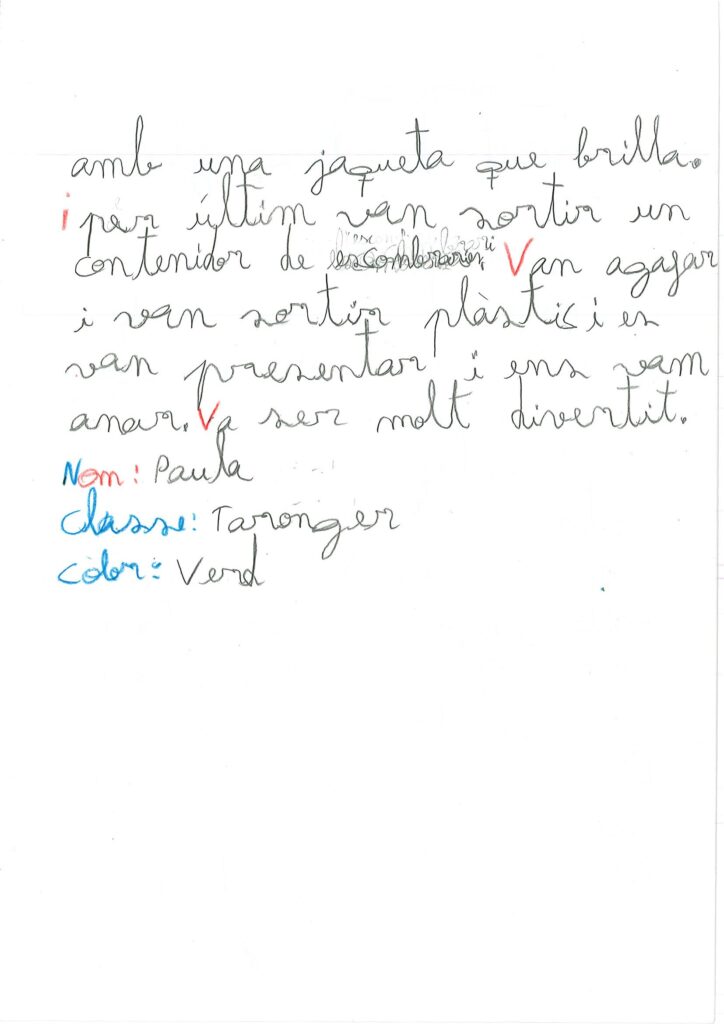 amb una jaqueta que brilla.
i per últim van sortir un
contenidor de escombraries. Van agafar
i van sortir plàstic i es
van presentar i ens vam
anar. Va ser molt divertit.
Nom: Paula
Classe: Taronger
Color: Verd